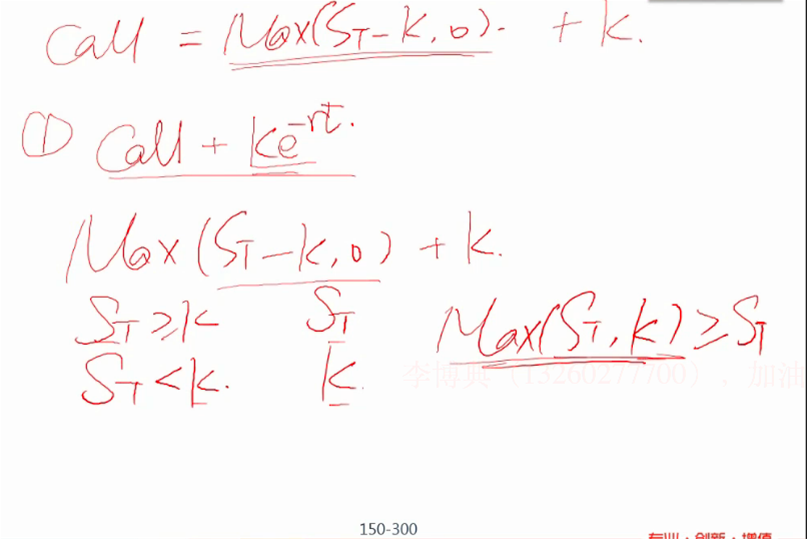 Call = Max(S_T - K, 0). + K.
① Call + Ke^{-rt}.
Max (S_T - K, 0) + K.
S_T ≥ K   S_T   Max(S_T, K) ≥ S_T
S_T < K.   K.
李博典（13260277700），加油
150-300
专业·创新·增值